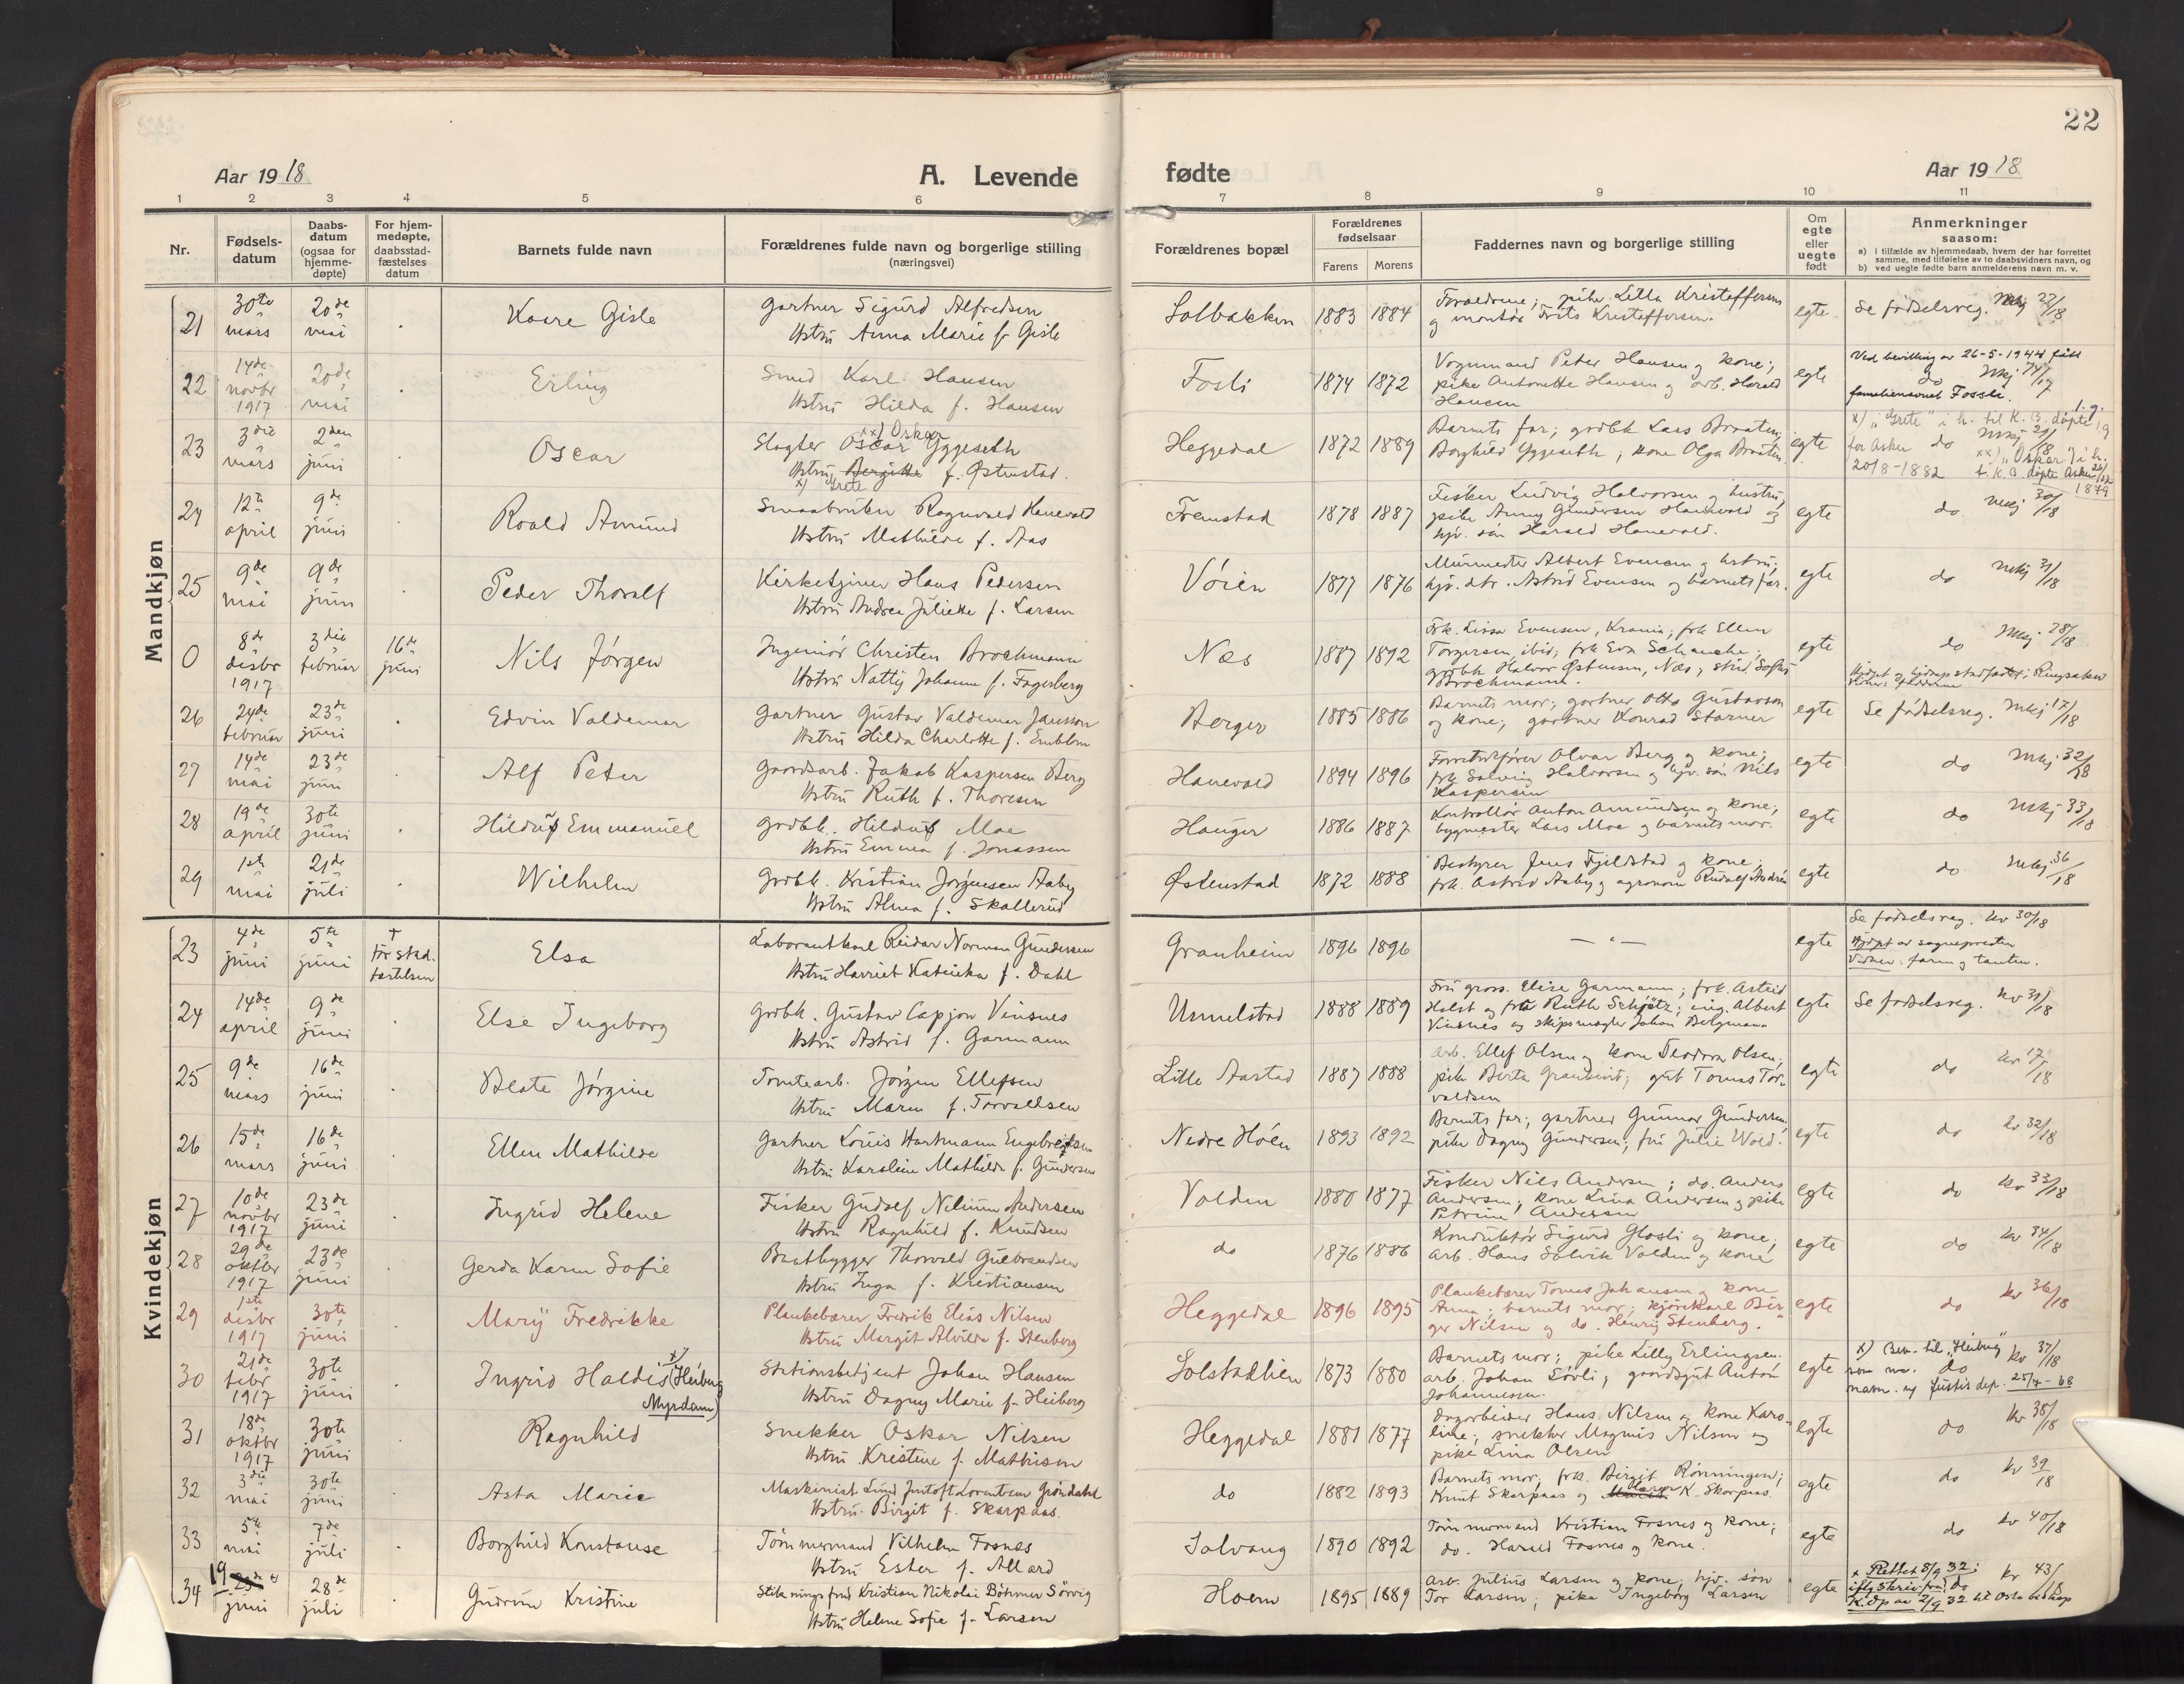 22
Aar 1918
A. Levende
fødte
Aar 1918
1 2 3 4 5 6 7 8 9 10 11
Nr.
Fødsels-
datum
Daabs-
datum
(ogsaa for
hjemme-
døpte)
For hjem-
medøpte,
daabsstad-
fæstelses
datum
Barnets fulde navn
Forældrenes fulde navn og borgerlige stilling
(næringsvei)
Forældrenes bopæl
Forældrenes
fødselsaar
Farens Morens
Faddernes navn og borgerlige stilling
Om
egte
eller
uegte
født
Anmerkninger
saasom:
a) i tilfælde av hjemmedaab, hvem der har forrettet
samme, med tilføielse av to daabsvidners navn, og
b) ved uegte fødte barn anmelderens navn m. v.
Mandkjøn
21 30te mars 20de mai Kaare Gisle
Gartner Sigurd Alfredsen
Hstru Anna Marie f. Gisle
Solbakken 1883 1884
Forældrene; pike Lilla Kristoffersen
og montør Frits Kristoffersen.
egte Se fødselsreg. Mkj 22/18
22 14de novbr 1917 20de mai Erling
Smed Karl Hansen
Hstru Hilda f. Hansen
Fosli 1874 1872
Vognmand Peter Hansen og kone;
pike Antonette Hansen og arb. Harald
Hansen
egte
Ved bevilling av 26-5-1944 fått
do Mkj 74/17
familienavnet Fossli.
23 3die mars 2den juni Oscar
xx) Oskar
Slagter Oscar Yggeseth
Hstru Bergitte f. Østenstad.
x) Grete
Heggedal 1872 1889
Barnets far; grdbk Lars Braaten;
Borghild Yggeseth; kone Olga Braaten
egte
x) "Grete" i h. til K. B. døpte
for Asker do Mkj 21/18
20/8-1882
xx) "Oskar" i h.
t. K. B. døpte Asker
1879
24 12te april 9de juni Roald Amund
Smaabruker Ragnvald Hanevold
Hstru Mathilde f. Aas
Fremstad 1878 1887
Fisker Ludvig Halvorsen og hustru;
pike Anny Gundersen Hanevold og
hjv. søn Harald Hanevold.
egte do Mkj 30/18
25 9de mai 9de juni Peder Thoralf
Kirketjener Hans Pedersen
Hstru Andrea Juliette f. Larsen
Vøien 1877 1876
Murmester Albert Evensen og hstru;
hjv. dtr. Astrid Evensen og barnets far.
egte do Mkj 31/18
0 8de desbr 1917 3die februar 16de juni Nils Jørgen
Ingeniør Christen Brochmann
Hstru Natty Johanne f. Fagerberg
Næs 1887 1892
Frk. Lissa Evensen, Krania; frk Ellen
Torgersen, ibid; frk Eva Schanche;
grdbk Halvor Østensen, Næs; stud. Sofus
Brochmann.
egte do Mkj. 28/18
26 24de februar 23de juni Edvin Valdemar
Gartner Gustav Valdemar Jansson
Hstru Hilda Charlotte f. Emblom
Berger 1885 1886
Barnets mor; gartner Otto Gustavson
og kone; gartner Konrad Starner
egte Se fødselsreg. Mkj 17/18
27 14de mai 23de juni Alf Peter
Gaardsarb. Jakob Kaspersen Berg
Hstru Ruth f. Thoresen
Hanevold 1894 1896
Forretnfører Olvar Berg og kone;
frk Solveig Halvorsen og hjv. søn Nils
Kaspersen
egte do Mkj 32/18
28 19de april 30te juni Hilduf Emmanuel
Grdbk. Hilduf Moe
Hstru Emma f. Jonassen
Hauger 1886 1887
Kontrollør Anton Amundsen og kone;
bygmester Lars Moe og barnets mor.
egte do Mkj 33/18
29 1ste mai 21de juli Wilhelm
Grdbk. Kristian Jørgensen Aaby
Hstru Alma f. Skallerud
Østenstad 1872 1888
Bestyrer Jens Fjeldstad og kone;
frk. Astrid Aaby og agronom Rudolf Andrén
egte do Mkj 36/18
Kvindekjøn
23 4de juni 5te juni † før stad-
fæstelsen
Elsa
Laborantkarl Reidar Norman Gundersen
Hstru Harriet Katinka f. Dahl
Granheim 1896 1896
— " —
egte
Se fødselsreg. kv 30/18
Hjdpt av sognepresten
Vidner: faren og tanten.
24 14de april 9de juni Else Ingeborg
Grdbk. Gustav Capjon Vinsnes
Hstru Astrid f. Garmann
Unnelstad 1888 1889
Fru gross. Elise Garmann; frk. Astrid
Holst og frk Ruth Schjøtz; ing. Albert
Vinsnes og skipsmægler Johan Bergmann
egte Se fødselsreg. kv 31/18
25 9de mars 16de juni Beate Jørgine
Tomtearb. Jørgen Ellefsen
Hstru Maren f. Torvaldsen
Lille Aastad 1887 1888
Arb. Ellef Olsen og kone Teodora Olsen;
pike Berta Grankvist; gut Tomas Tor-
valdsen
egte do kv 17/18
26 15de mars 16de juni Ellen Mathilde
Gartner Louis Hartmann Engebretsen
Hstru Karoline Mathilde f. Gundersen
Nedre Høen 1893 1892
Barnets far; gartner Gunnar Gundersen;
pike Dagny Gundersen; fru Julie Wold.
egte do kv 32/18
27 10de novbr 1917 23de juni Ingrid Helene
Fisker Gudolf Nelium Andersen
Hstru Ragnhild f. Knudsen
Volden 1880 1877
Fisker Nils Andersen; do. Anders
Andersen; kone Lina Andersen og pike
Petrine Andersen
egte do kv 33/18
28 29de oktbr 1917 23de juni Gerda Karen Sofie
Baatbygger Thorvald Gulbrandsen
Hstru Inga f. Kristiansen
do 1876 1886
Konduktør Sigurd Glosli og kone;
arb. Hans Solvik Volden og kone
egte do kv 34/18
29 1ste desbr 1917 30te juni Mary Fredrikke
Plankebærer Fredrik Elias Nilsen
Hstru Margit Alvilda f. Stenberg
Heggedal 1896 1895
Plankebærer Tomas Johansen og kone
Anna; barnets mor; kjørekarl Bir-
ger Nilsen og do. Henry Stenberg.
egte do kv 36/18
30 21de febr 1917 30te juni Ingrid Haldis x) (Heiberg
Myrdam)
Stationsbetjent Johan Hansen
Hstru Dagny Marie f. Heiberg
Solstadlien 1873 1880
Barnets mor; pike Lilly Erlingsen;
arb. Johan Søvli; gaardsgut Anton
Johannessen.
egte
x) Bev. til "Heiberg" kv 37/18
som m. do
navn. og Justis dep. 25/4-68
31 18de oktbr 1917 30te juni Ragnhild
Snekker Oskar Nilsen
Hstru Kristine f. Mathisen
Heggedal 1881 1877
Dagarbeider Hans Nilsen og kone Karo-
line; snekker Magnus Nilsen og
pike Lina Olsen
egte do kv 38/18
32 3die mai 30te juni Asta Marie
Maskinist Lund Jentoft Lorentsen Grøndahl
Hstru Birgit f. Skarpaas.
do 1882 1893
Barnets mor; frk. Birgit Rønningen;
Knut Skarpaas og Maren K. Skarpaas
egte do kv 39/18
33 5te mai 7de juli Borghild Konstanse
Tømmermand Vilhelm Fosnes
Hstru Ester f. Allard
Solvang 1890 1892
Tømmermand Kristian Fosnes og kone;
do. Harald Fosnes og kone.
egte do kv 40/18
34 19 25de x) juni 28de juli Gudrun Kristine
Stikningsfmd Kristian Nikolai Bøhmer Sørvig
Hstru Helene Sofie f. Larsen
Hoem 1895 1889
Arb. Julius Larsen og kone; hjv. søn
Tor Larsen; pike Ingeborg Larsen
egte
x Rettet 8/9 32 kv 43/18
iflg skriv fra do
K.dp av 2/9 32 til Oslo biskop